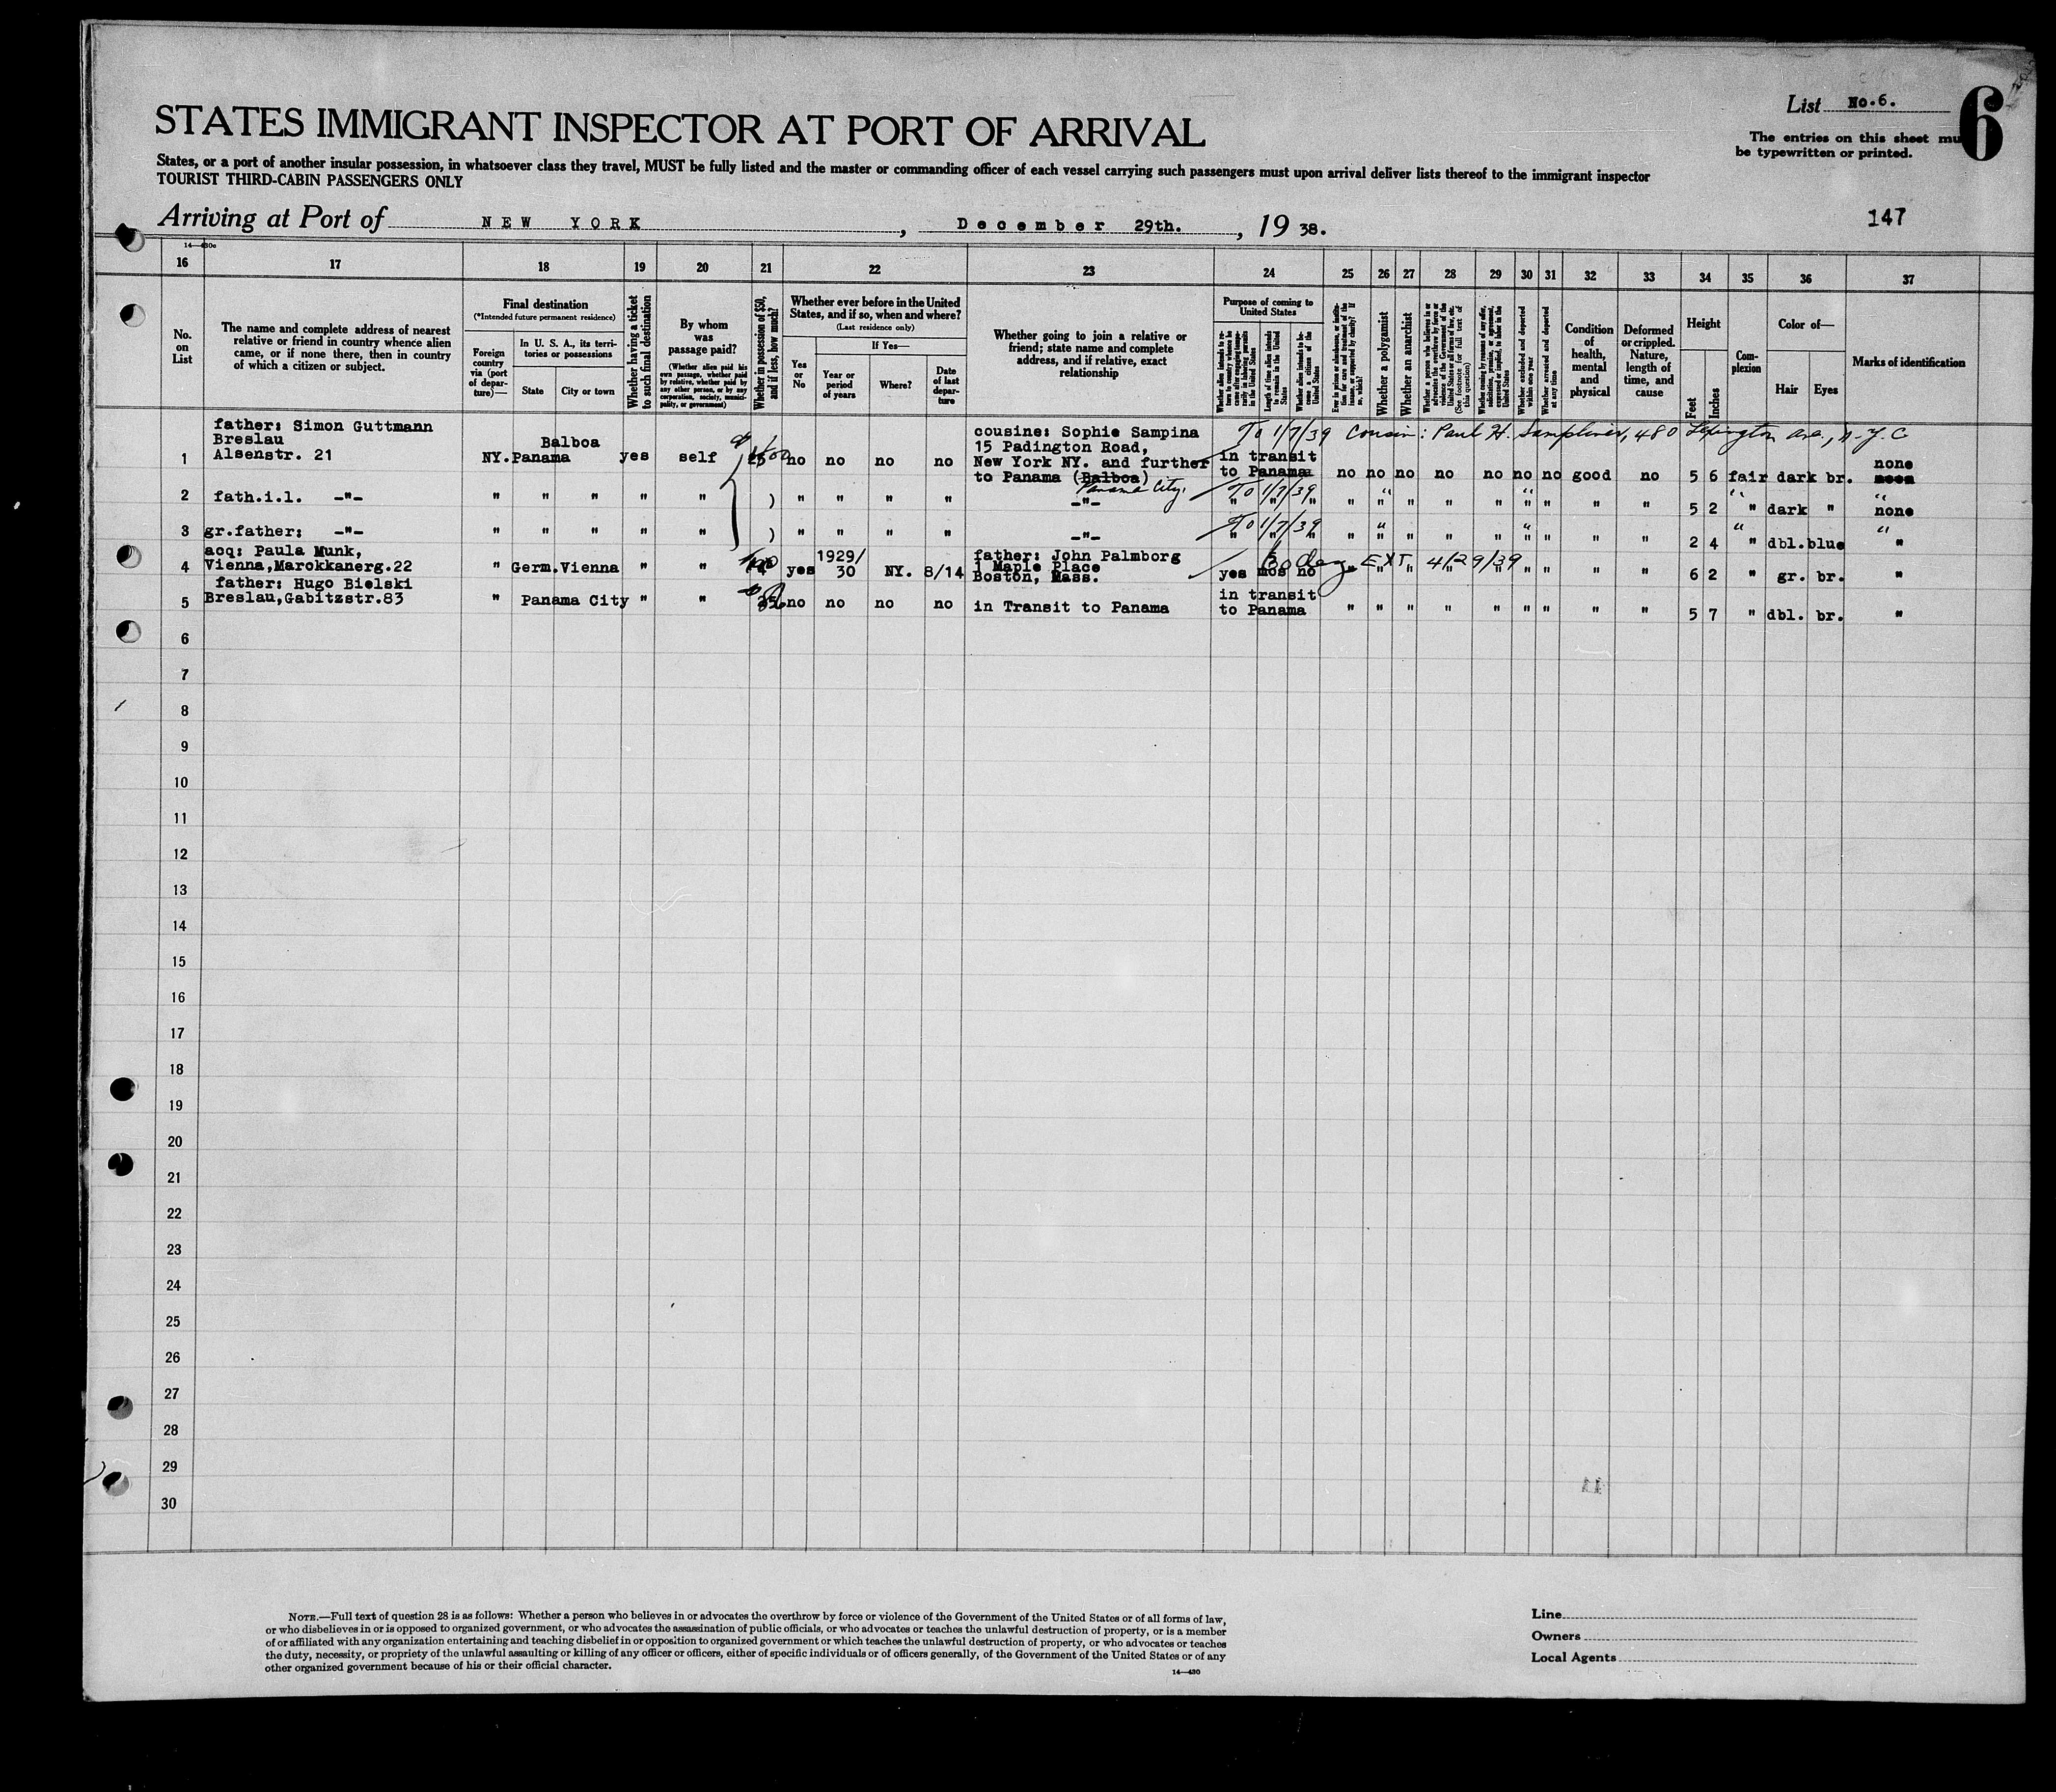 List No.6.
6
The entries on this sheet mu
be typewritten or printed.
STATES IMMIGRANT INSPECTOR AT PORT OF ARRIVAL
States, or a port of another insular possession, in whatsoever class they travel, MUST be fully listed and the master or commanding officer of each vessel carrying such passengers must upon arrival deliver lists thereof to the immigrant inspector
TOURIST THIRD-CABIN PASSENGERS ONLY
147
Arriving at Port of NEW YORK, December 29th., 19 38.
16 17 18 19 20 21 22 23 24 25 26 27 28 29 30 31 32 33 34 35 36 37
No. on List
The name and complete address of nearest
relative or friend in country whence alien
came, or if none there, then in country
of which a citizen or subject.
Final destination
(*Intended future permanent residence)
Foreign country via (port of departure)—
In U. S. A., its territories or possessions
State
City or town
Whether having a ticket to such final destination
By whom was passage paid?
(Whether alien paid his own passage, whether paid by relative, whether paid by any other person, or by any corporation, society, municipality, or government)
Whether in possession of $50, and if less, how much?
Whether ever before in the United
States, and if so, when and where?
(Last residence only)
Yes or No
If Yes—
Year or period of years
Where?
Date of last departure
Whether going to join a relative or
friend; state name and complete
address, and if relative, exact
relationship
Purpose of coming to United States
Length of time alien intends to remain in the United States
Whether alien intends to become citizen of the United States
Whether a polygamist
Whether an anarchist
(See footnote for full text of this question)
Whether excluded and deported within one year
Whether arrested and deported at any time
Condition of health, mental and physical
Deformed or crippled. Nature, length of time, and cause
Height
Feet
Inches
Complexion
Color of—
Hair
Eyes
Marks of identification
1 father: Simon Guttmann
Breslau
Alsenstr. 21
NY. Balboa Panama yes self no no no no
cousine: Sophie Sampina
15 Padington Road,
New York NY. and further
to Panama (Balboa)
Panama City.
To 1/7/39 Cousin: Paul H. Sampliner, 480 Lexington Ave., N.Y.C
in transit
to Panama
no no no no no no no good no 5 6 fair dark br. none
2 fath.i.l. -"- " " " " " ) " " " " -"- To 1/7/39 " " " " " " " " " 5 2 " dark " none
3 gr.father: -"- " " " " " ) " " " " -"- To 1/7/39 " " " " " " " " " 2 4 " dbl. blue "
4 acq: Paula Munk,
Vienna,Marokkanerg.22
" Germ.Vienna " " yes 1929/30 NY. 8/14
father: John Palmborg
1 Maple Place
Boston, Mass.
yes mos no 60 days EXT 4/29/39 " " " " " " " " " 6 2 " gr. br. "
5 father: Hugo Bielski
Breslau,Gabitzstr.83
" Panama City " " no no no no in Transit to Panama
in transit
to Panama
" " " " " " " " " 5 7 " dbl. br. "
6
7
8
9
10
11
12
13
14
15
16
17
18
19
20
21
22
23
24
25
26
27
28
29
30
NOTE.—Full text of question 28 is as follows: Whether a person who believes in or advocates the overthrow by force or violence of the Government of the United States or of all forms of law,
or who disbelieves in or is opposed to organized government, or who advocates the assassination of public officials, or who advocates or teaches the unlawful destruction of property, or is a member
of or affiliated with any organization entertaining and teaching disbelief in or opposition to organized government or which teaches the unlawful destruction of property, or who advocates or teaches
the duty, necessity, or propriety of the unlawful assaulting or killing of any officer or officers, either of specific individuals or of officers generally, of the Government of the United States or of any
other organized government because of his or their official character.
14—430
Line
Owners
Local Agents